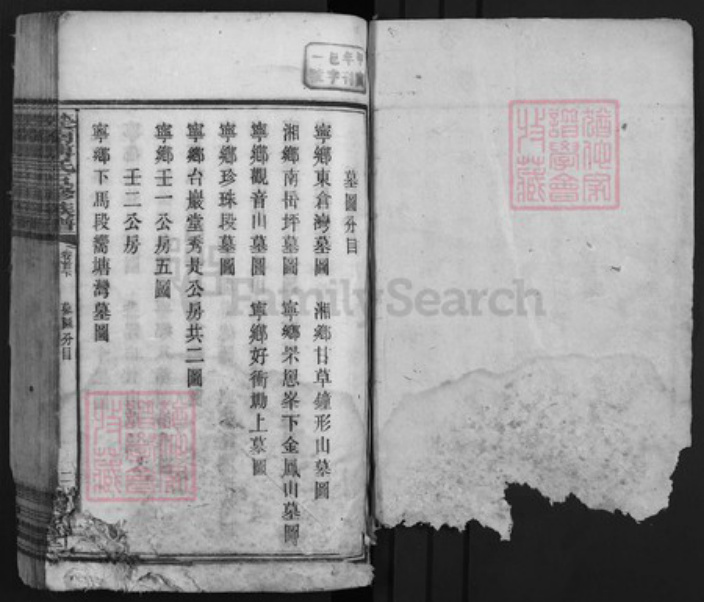 墓圖分目
寧鄉東倉灣墓圖 湘鄉甘草鐘形山墓圖
湘鄉南岳坪墓圖 寧鄉杲恩峯下金鳳山墓圖
寧鄉觀音山墓圖 寧鄉好衝塅上墓圖
寧鄉珍珠段墓圖
寧鄉台巖堂秀公房共二圖
寧鄉壬一公房五圖
壬二公房
寧鄉下馬段塘灣墓圖
墓圖分目
二
譜學會
收藏
FamilySearch